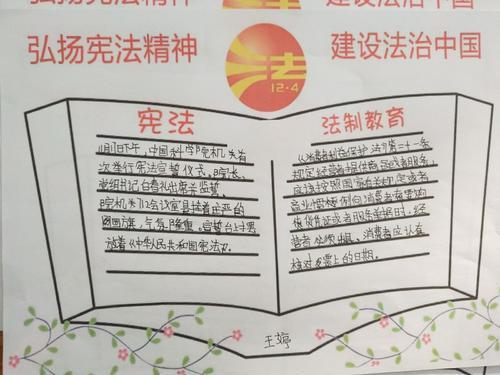 弘扬宪法精神
建设法治中国
12·4
宪法
11月1日下午，中国科学院机关首
次举行宪法宣誓仪式。院长、
党组书记白春礼出席并监誓。
院机关112会议室悬挂着庄严的
国旗，气氛隆重。宣誓台上摆
放着《中华人民共和国宪法》。
法制教育
《消费者利益保护法》第二十一条
规定经营者提供商品或者服务，
应该按照国家有关规定或者
商业惯例向消费者
货凭证或者服务单据时，经
营者必须出具。消费者应认真
核对发票上的日期。
王婷